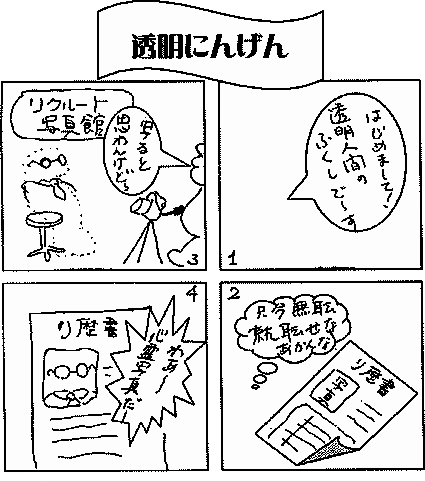 透明にんげん
1
はじめまして!、
透明人間の
ふくしで〜す
2
只今無職
就職せな
あかんな
り歴書
写真
3
リクルート
写真館
写ると
思わんけど〜
4
り歴書
わあ〜
心霊写真だ